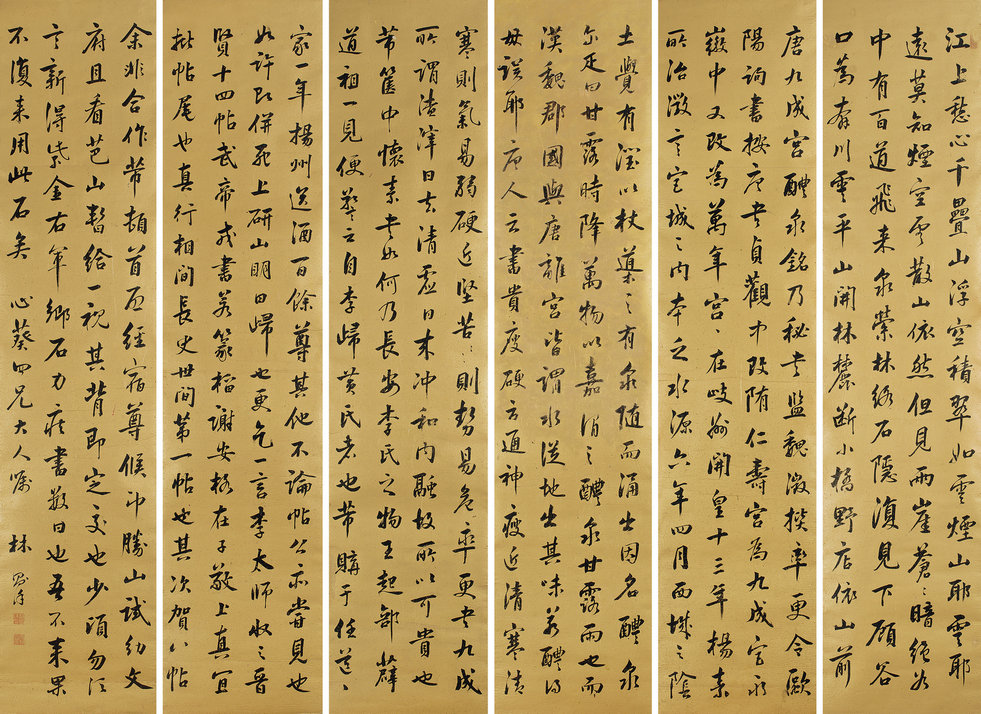 江上愁心千疊山浮空積翠如雲煙山耶雲耶
遠莫知煙空雲散山依然但見兩崖蒼〻暗絕谷
中有百道飛來泉縈林絡石隱復見下顧谷
口為奔川雲平山開林麓斷小橋野店依山前
唐九成宮醴泉銘乃秘書監魏徵撰率更令歐
陽詢書按唐書貞觀中改隋仁壽宮為九成宮永
徽中又改為萬年宮〻在岐州開皇十三年楊素
所治徵言宮城之內本乏水源六年四月西城之陰
土覺有潤以杖導之有泉隨而涌出因名醴泉
尔疋曰甘露時降萬物以嘉謂之醴泉甘露雨也而
漢魏郡國與唐離宮皆謂水從地出其味若醴得
毋誤耶唐人云書貴瘦硬云通神瘦近清寒清
寒則氣易弱硬近堅苦〻則勢易危率更書九成
所謂渣滓日去清虛日來沖和內融故所以可貴也
芾篋中懷素書如何乃長安李氏之物王起部薛
道祖一見便驚云自李歸黃氏者也芾購于任道〻
家一年揚州送酒百餘尊其他不論帖公亦嘗見也
如許即併馳上研山明日歸也更乞一言李太師收之晉
賢十四帖武帝戎書若篆籀謝安格在子敬上真宜
批帖尾也真行相間長史世間第一帖也其次賀八帖
余非合作芾頓首再經宿尊候沖勝山試納文
府且看芭山暫給一視其背即定交也少頃勿復
言新得紫金右軍鄉石力疾書數日也吾不來果
不復來用此石矣 心葵四兄大人屬 林